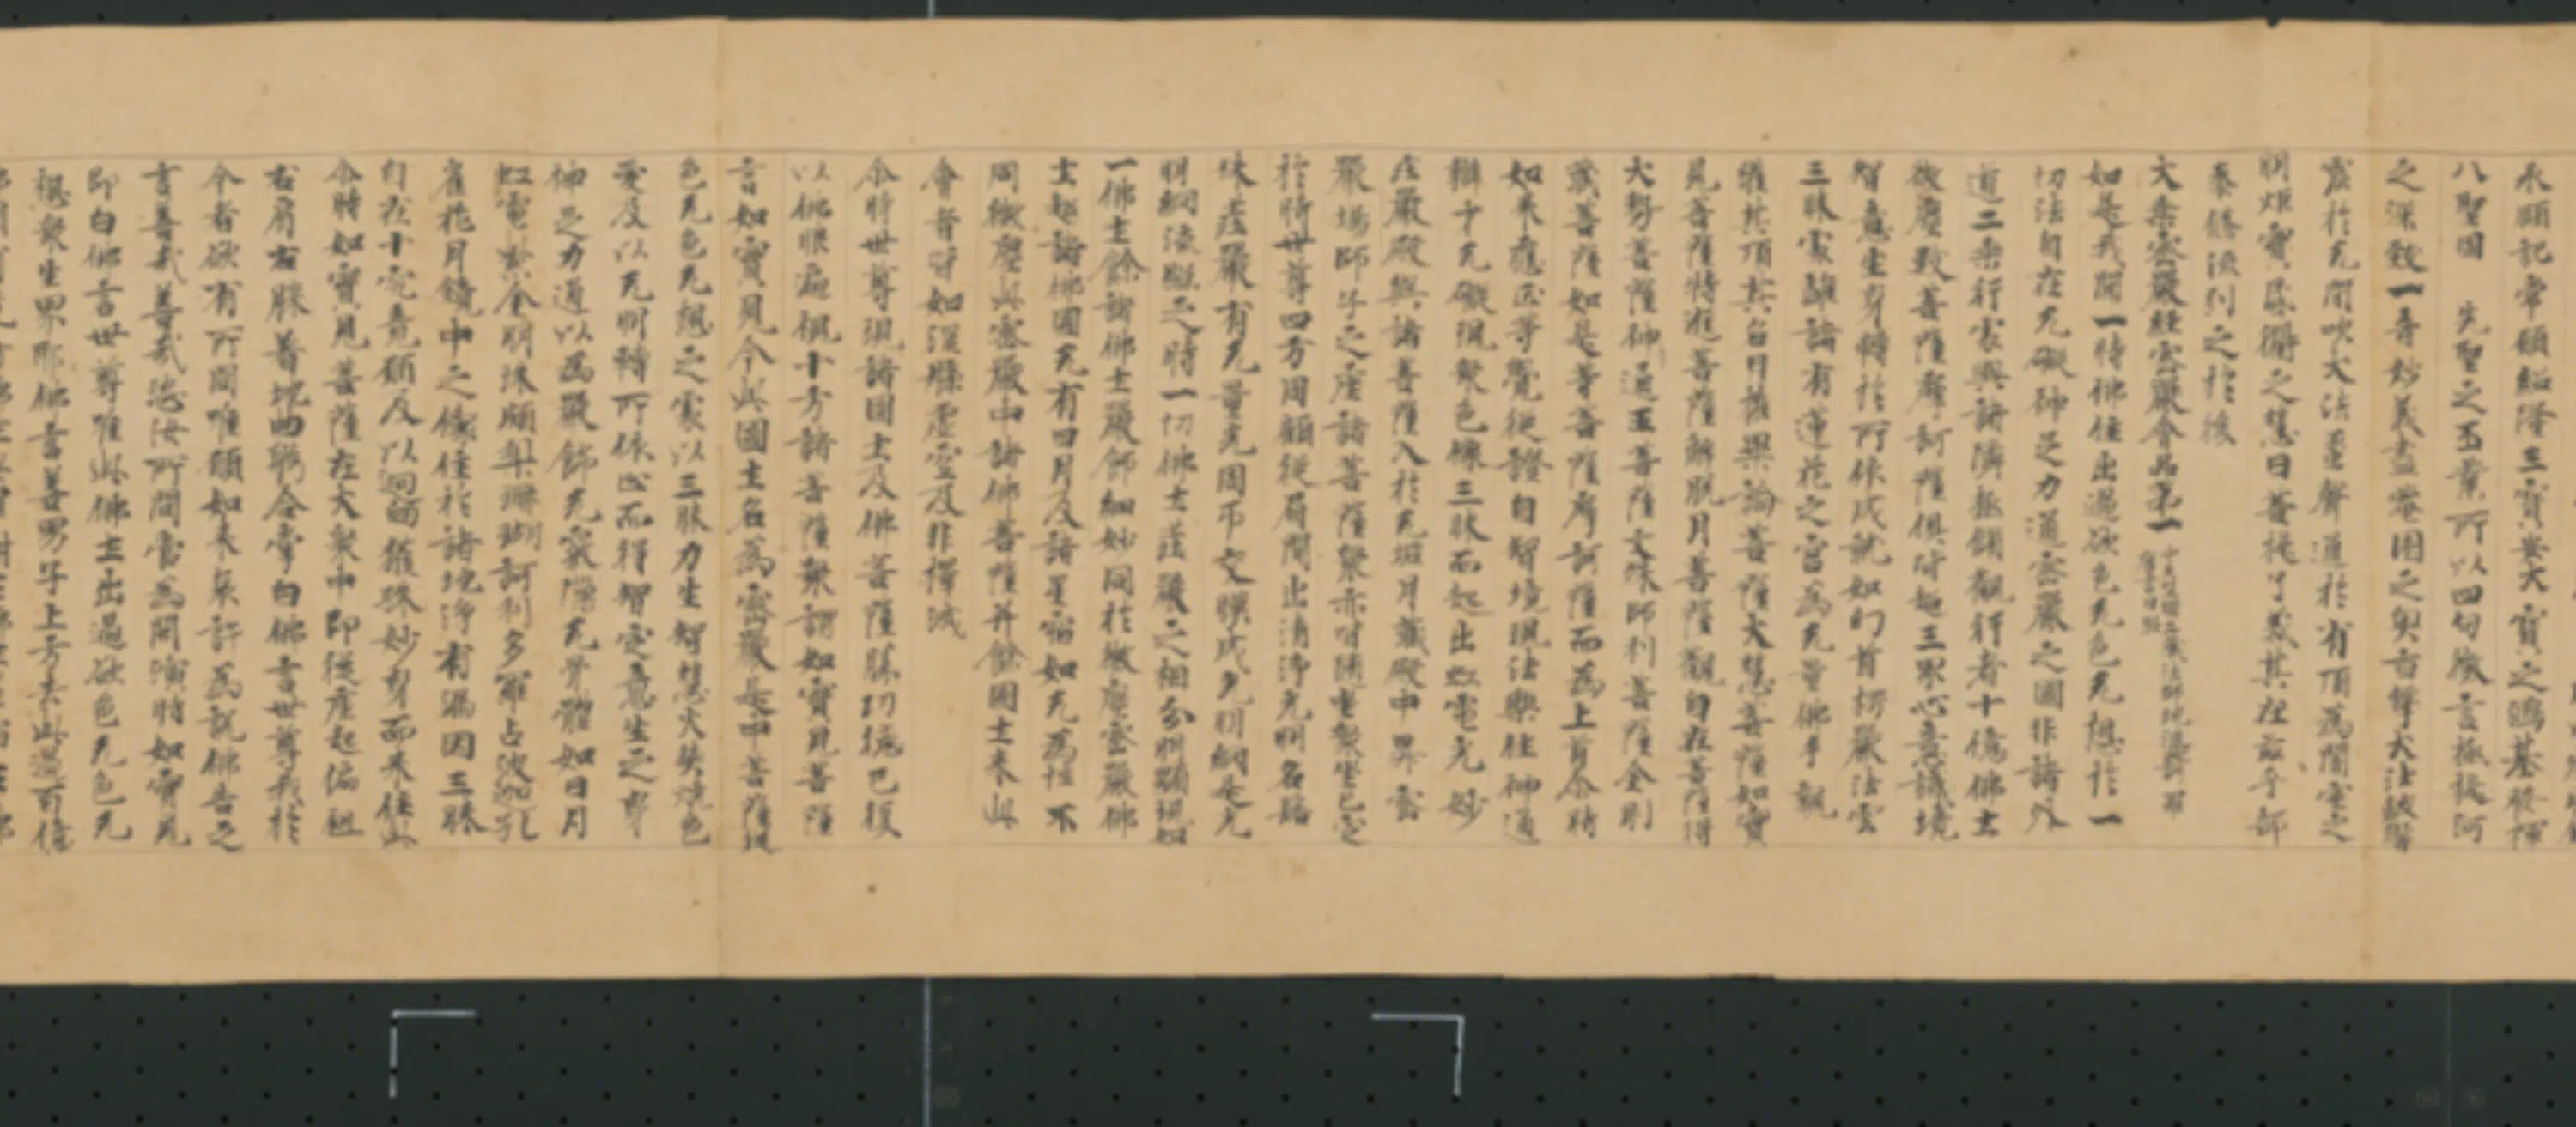 永願記常願紹隆三寶安大寶之鴻基發揮
八聖固　先聖之丕業所以四句微言極提河
之深致一音妙義盡菴園之奧旨擊大法鼓響
震於无間吹大法䗍聲通於有頂為闇室之
明炬實昏衢之慧日菩提了義其在茲乎部
袠條流列之於後
大乘密嚴經密嚴會品第一
如是我聞一時佛住出過欲色无色无想於一
切法自在无礙神足力通密嚴之國非諸外
道二乘行處與諸隣極修觀行者十億佛土
微塵數菩薩摩訶薩俱皆超三界心意識境
智意生身轉於所依成就如幻首楞嚴法雲
三昧處離諸有蓮花之宮為无量佛手親
灌其頂其名曰摧異論菩薩大慧菩薩如實
見菩薩持進菩薩解脫月菩薩觀自在菩薩得
大勢菩薩神通王菩薩文殊師利菩薩金剛
藏菩薩如是等菩薩摩訶薩而為上首尒時
如來應正等覺從證自智境現法樂住神通
辯才无礙現眾色像三昧而起出虹電光妙
莊嚴殿與諸菩薩入於无垢月藏殿中昇密
嚴場師子之座諸菩薩眾亦皆隨坐眾坐已定
於時世尊四方周顧從眉間出清淨光明名髻
珠莊嚴有无量光周帀交映成光明網是光
明網流照之時一切佛土莊嚴之相分明顯現如
一佛土餘諸佛土嚴飾細妙同於微塵密嚴佛
土超諸佛國无有日月及諸星宿如无為性不
同微塵此密嚴中諸佛菩薩并餘國土來此
會者皆如涅槃虛空及非擇滅
尒時世尊現諸國土及佛菩薩勝功德已復
以佛眼遍視十方諸菩薩眾謂如實見菩薩
言如實見今此國土名為密嚴是中菩薩現
色无色无想之處以三昧力生智慧火焚燒色
愛及以无明轉所依止而得智定意生之身
神足力通以為嚴飾无竅隙无骨體如日月
虹電紫金明珠頗梨珊瑚訶利多羅占波迦孔
雀花月鏡中之像住於諸境淨有漏因三昧
自在十究竟願及以迴向獲殊妙身而來住此
尒時如實見菩薩在大眾中即從座起偏袒
右肩右膝著地曲躬合掌白佛言世尊我於
今者欲有所問唯願如來哀許為說佛告之
言善哉善哉恣汝所問當為開演時如實見
即白佛言世尊唯此佛土出過欲色无色无
想眾生界耶佛言善男子上方去此過百億